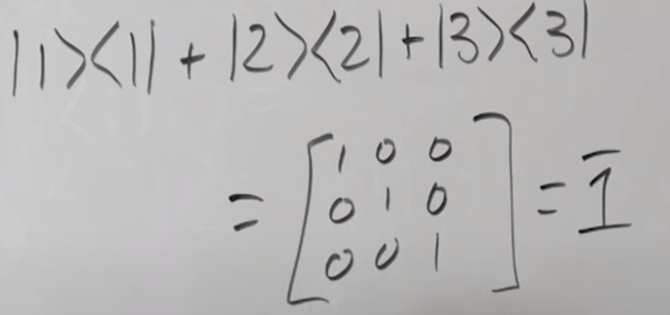 |1><1| + |2><2| + |3><3|
= [1 0 0
0 1 0
0 0 1] = 1̄